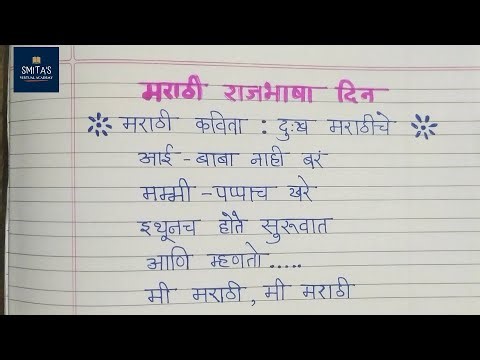 SMITA'S
VIRTUAL ACADEMY
मराठी राजभाषा दिन
मराठी कविता : दुःख मराठीचे
आई - बाबा नाही बरं
मम्मी - पप्पाच खरे
इथूनच होते सुरूवात
आणि म्हणतो.....
मी मराठी , मी मराठी